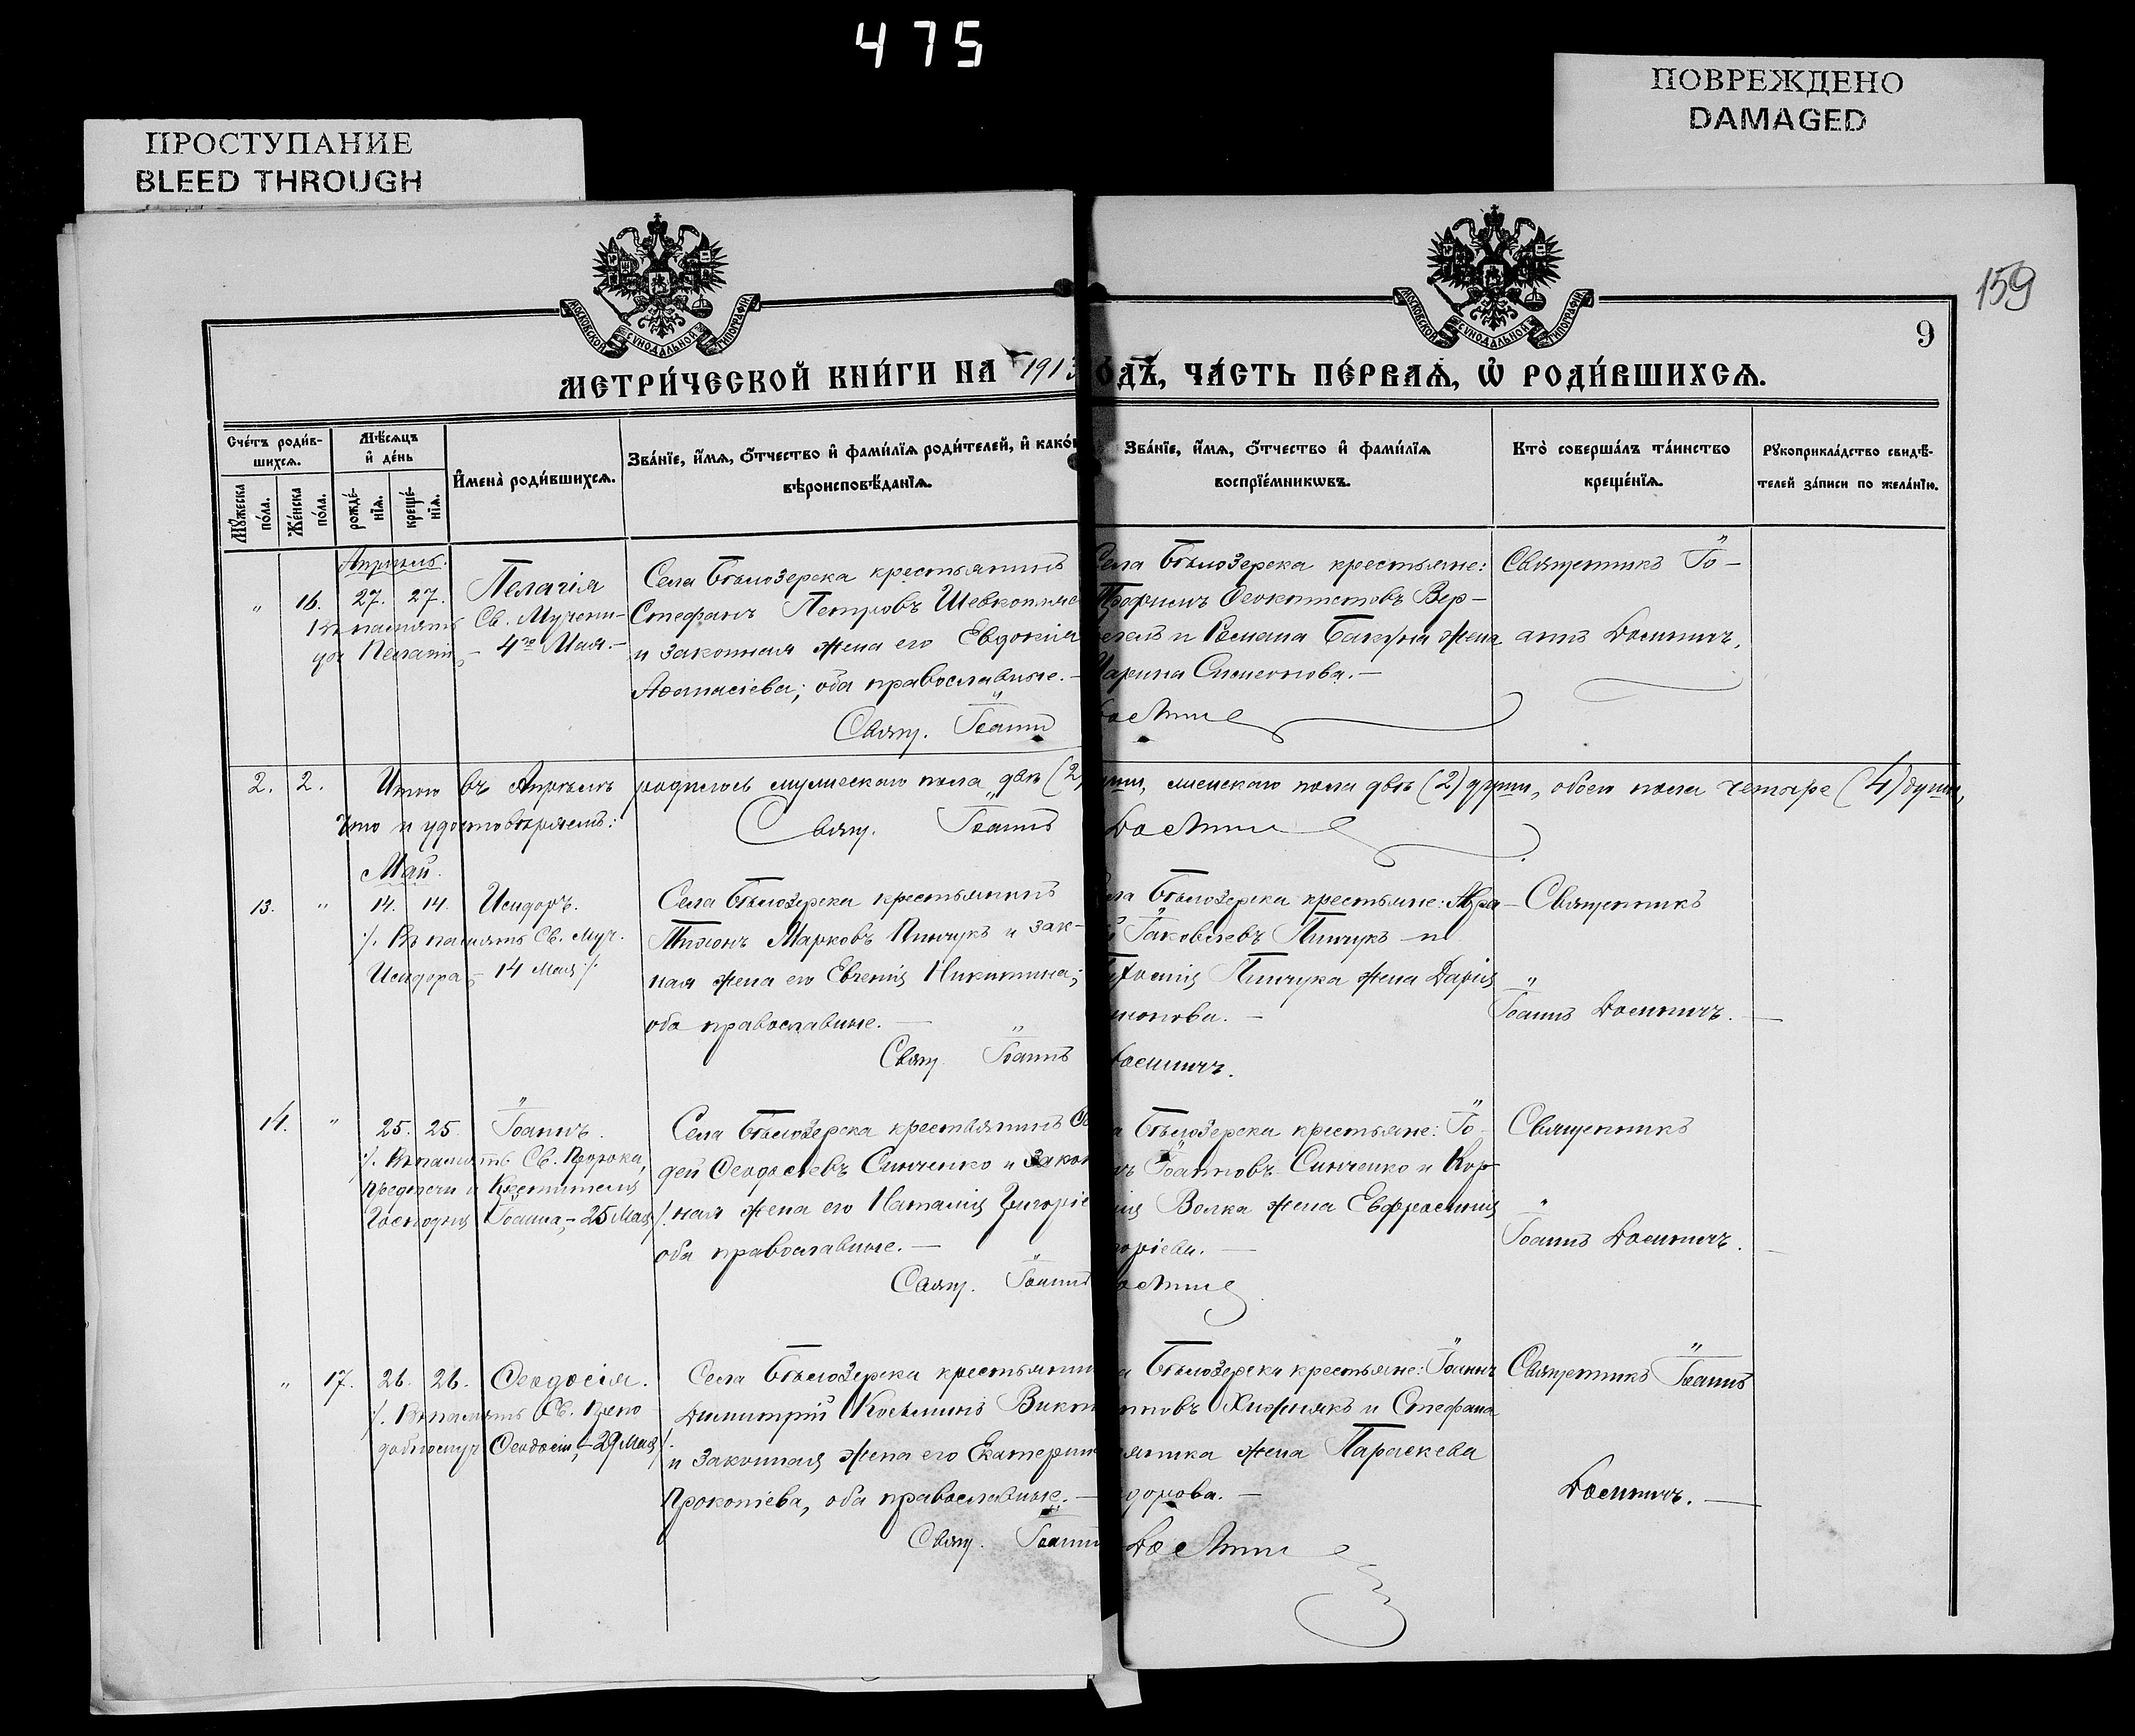 475
ПРОСТУПАНИЕ
BLEED THROUGH
ПОВРЕЖДЕНО
DAMAGED
159
МОСКОВСКОЙ СУНОДАЛЬНОЙ ТИПОГРАФІИ
МОСКОВСКОЙ СУНОДАЛЬНОЙ ТИПОГРАФІИ
9
МЕТРИ́ЧЕСКОЙ КНИ́ГИ НА 1913 О́ДЪ, ЧА́СТЬ ПЕ́РВАѦ, Ѡ҆ РОДИ́ВШИХСѦ.
Сче́тъ роди́в-
шихсѧ.
Мꙋ́жеска по́ла.
Же́нска по́ла.
Мѣ́сѧцъ
и҆ де́нь
рожде́-
нїѧ.
креще́-
нїѧ.
И҆мена̀ роди́вшихсѧ.
Зва́нїе, и҆́мѧ, ѻ҆́тчество и҆ фами́лїѧ роди́телей, и҆ како́
вѣроисповѣ́данїѧ.
Зва́нїе, и҆́мѧ, ѻ҆́тчество и҆ фами́лїѧ
воспрїе́мникѡвъ.
Кто̀ соверша́лъ та́инство
креще́нїѧ.
Рꙋкоприкла́дство свидѣ́-
телей за́писи по жела́нїю.
Апрѣль.
" 16. 27. 27. Пелагія
Въ память Св. Мучени-
цы Пелагіи, – 4го Мая. –
Села Бѣлозерска крестьянинъ
Стефанъ Петровъ Шевкопляс
и законная жена его Евдокія
Аѳанасіева; оба православные. –
Свящ. Іоаннъ
Села Бѣлозерска крестьяне:
Трофимъ Ѳеоктистовъ Вер-
и Романа Бакума жена
Марина Симеонова. –
Священникъ Іо-
аннъ Досинчъ.
2. 2. Итого въ Апрѣлѣ родилось мужескаго пола двѣ (2) души, женскаго пола двѣ (2) души, обоего пола четыре (4) души,
Что и удостовѣряемъ:
Свящ. Іоаннъ
Май.
13. " 14. 14. Исидоръ.
/. Въ память Св. Муч.
Исидора, – 14 Мая /.
Села Бѣлозерска крестьянинъ
Тихонъ Марковъ Пинчукъ и зак-
ная жена его Евгенія Никитина;
оба православные. –
Свящ. Іоаннъ
Бѣлозерска крестьяне:
Іаковлевъ Пинчукъ – и
Пинчука жена Дарія
Священникъ
Іоаннъ Досинчъ. –
14. " 25. 25. Іоаннъ.
/. Въ память Св. Пророка,
Предтечи и Крестителя
Господня Іоанна, – 25 Мая /.
Села Бѣлозерска крестьянинъ
дей Ѳеодосіевъ Синченко и закон
ная жена его Наталія Григоріе
оба православные. –
Свящ. Іоаннъ
Бѣлозерска крестьяне: Іо-
Іоанновъ Синченко и Кор-
Волка жена Евфросинія
горіева. –
Священникъ
Іоаннъ Досинчъ. –
" 17. 26. 26. Ѳеодосія.
/. Въ память Св. Препо
добномуч. Ѳеодосіи, – 29 Мая /.
Села Бѣлозерска крестьянин
Димитрій Косьминъ
и законная жена его Екатерин
Прокопіева, оба православные. –
Свящ. Іоаннъ
Бѣлозерска крестьяне: Іоаннъ
Хижнякъ и Стефана
жена Параскева
дорова. –
Священникъ Іоаннъ
Досинчъ. –